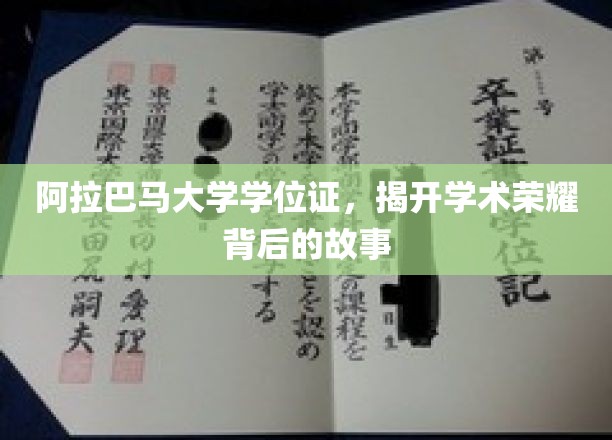 阿拉巴马大学学位证，揭开学术荣耀
背后的故事
第 号
卒業証 学位記
本学商学部 定の課程を
修めて本学 ことを認め
学士(商学)の学 する
平成
東京国際大学 長 田村
東京国際大 長田尻嗣夫